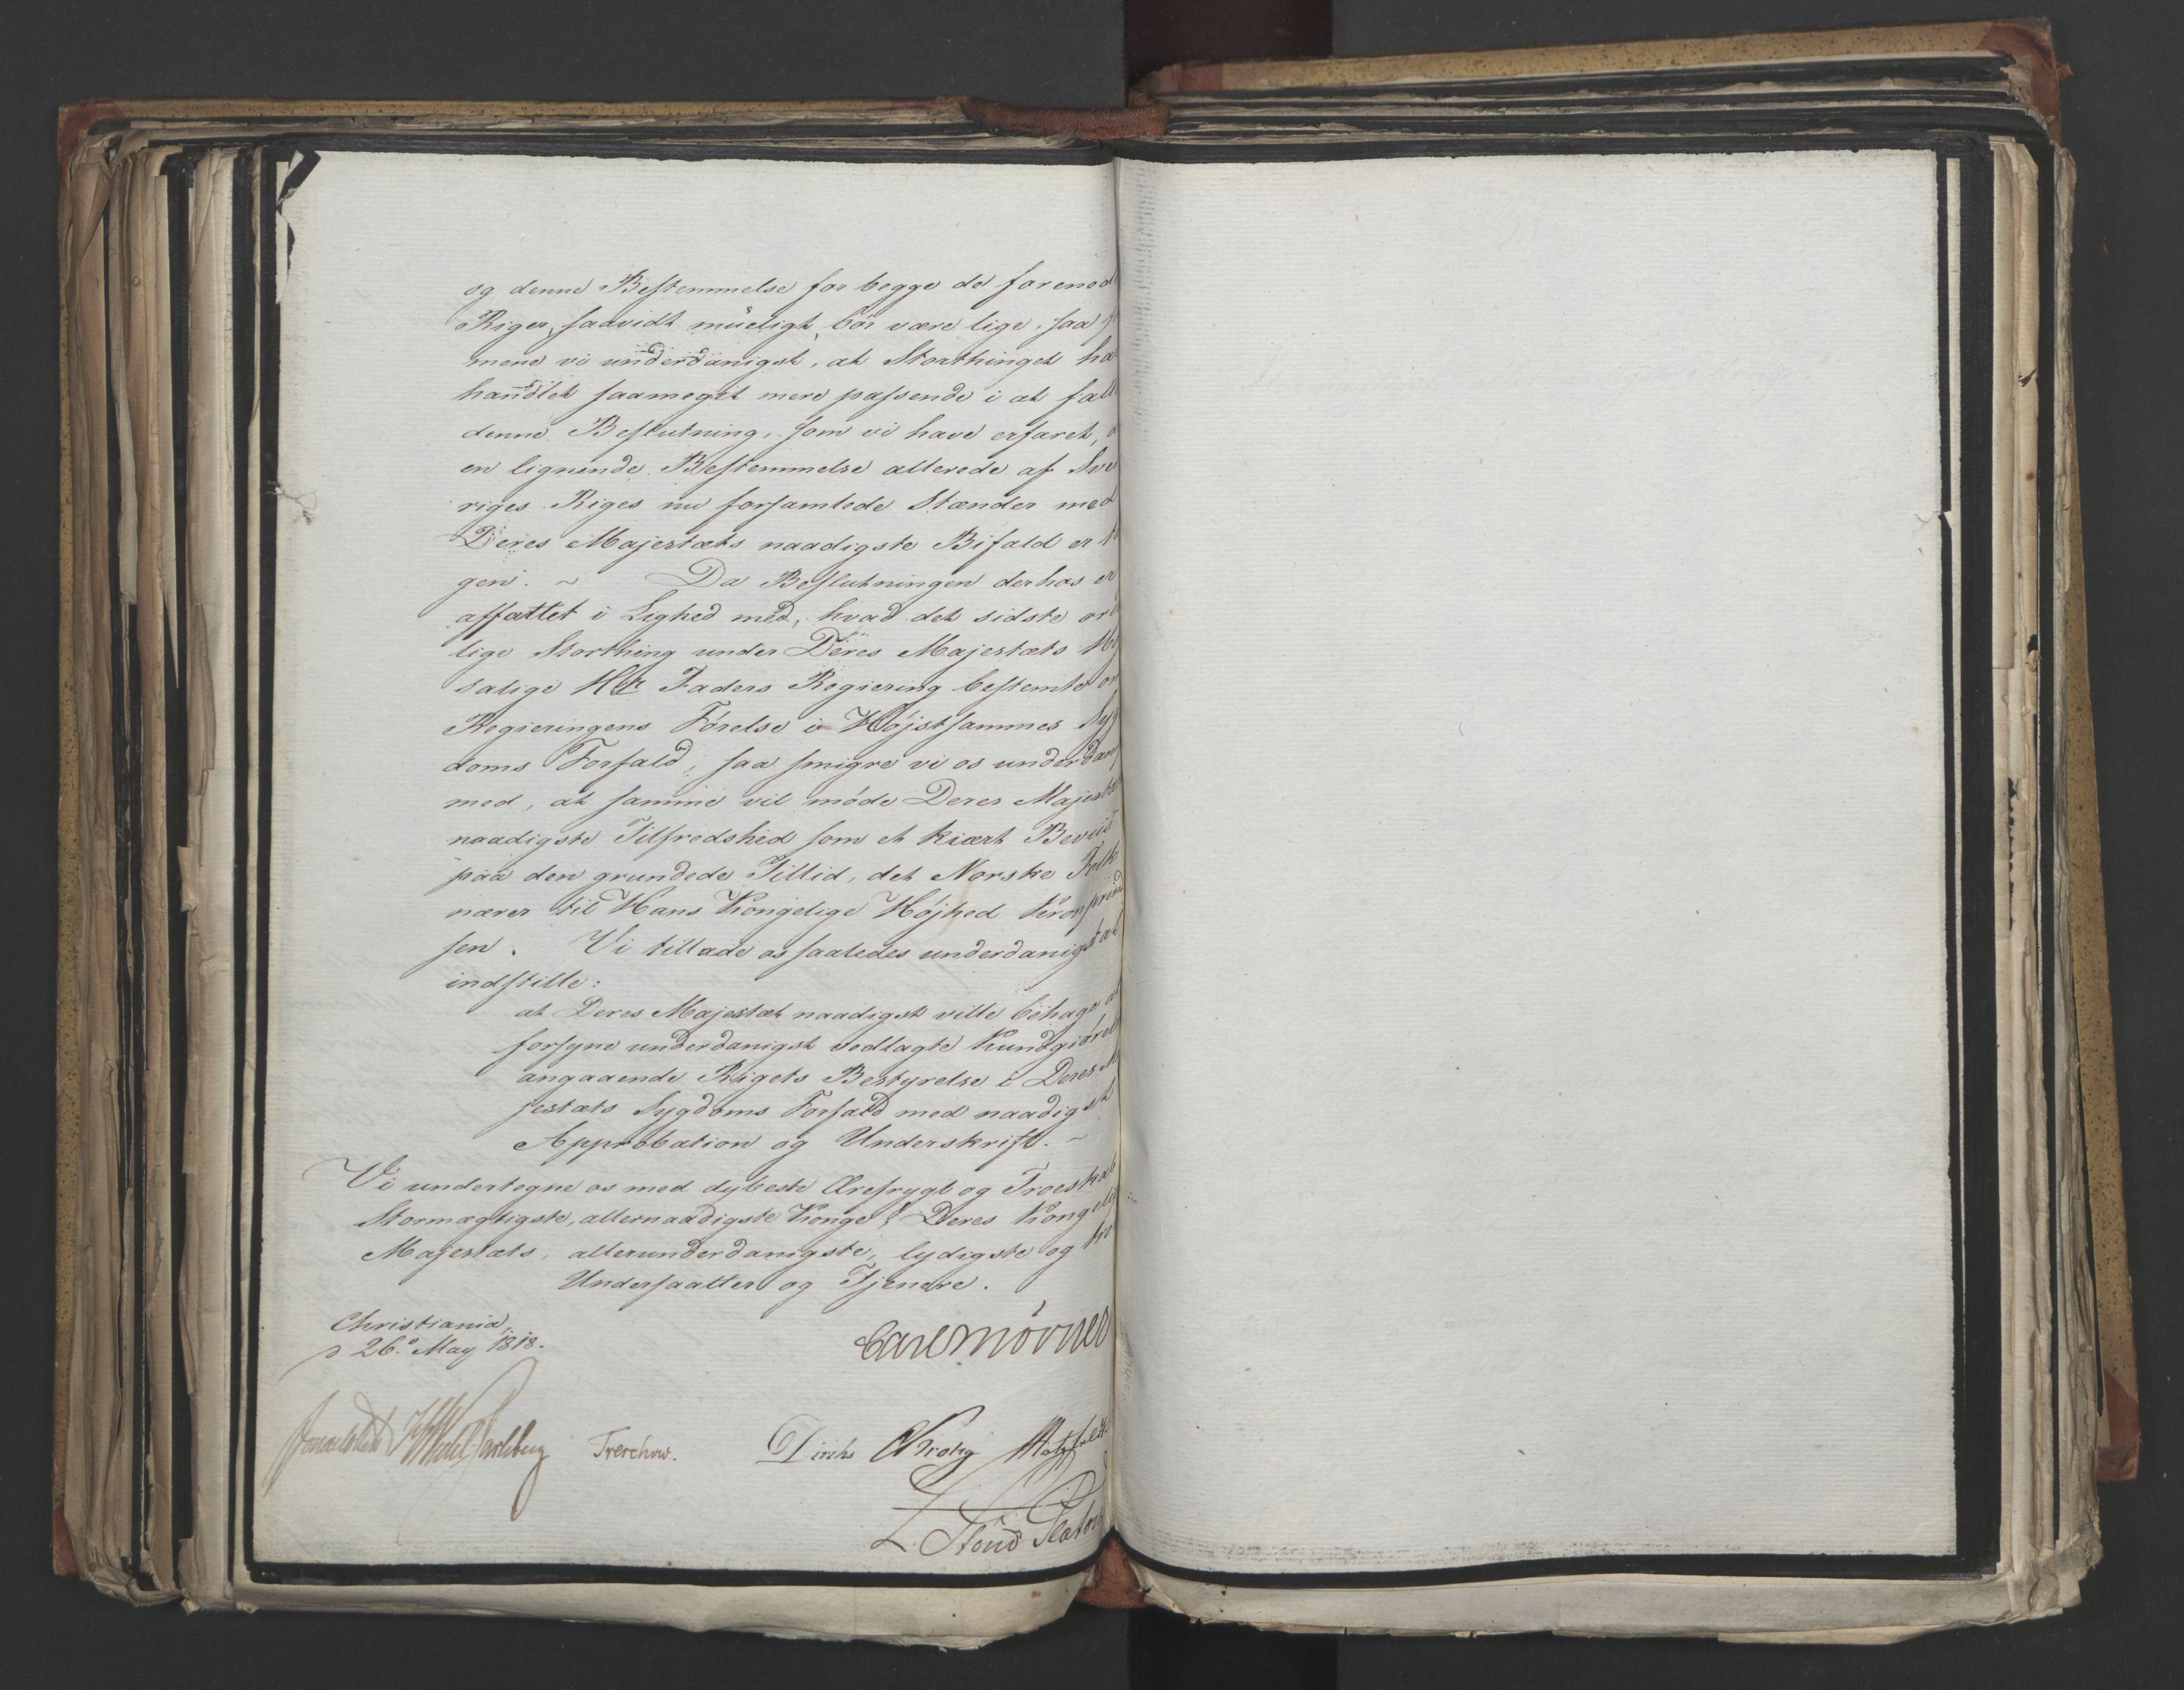 og denne Bestemmelse for begge de forened
Riger, saavidt mueligt, bör være lige, saa
mene vi underdanigst, at Storthinget ha
handlet saameget mere passende i at fatt
denne Beslutning, som vi have erfaret,
en lignende Bestemmelse allerede af Sve
riges Riges nu forsamlede Stænder med
Deres Majestæts naadigste Bifald er
gen. ~ Da Beslutningen derhos er
affattet i Lighed med, hvad det sidste ord
lige Storthing under Deres Majestæts
salige Hr Faders Regiering bestemte om
Regieringens Førelse i Højstsammes Syg
doms Forfald, saa smigre vi os underdan
med, at samme vil møde Deres Majestæ
naadigste Tilfredshed som et kiært Beviis
paa den grundede Tillid, det Norske Folk
nærer til Hans Kongelige Højhed Kronprind
sen. Vi tillade os saaledes underdanigst at
indstille:
at Deres Majestæt naadigst ville behage at
forsyne underdanigst vedlagte Kundgiørel
angaaende Rigets Bestyrelse i Deres Ma
jestæts Sygdoms Forfald med naadigst
Approbation og Underskrift. ~
Vi undertegne os med dybeste Ærefrygt og Troeskab
Stormægtigste, allernaadigste Konge! Deres Kongelig
Majestæts, allerunderdanigste, lydigste og tro
Undersaatter og Tjenere.
Christiania,
d 26de May 1818.
Carl Mörner
Sommerhielm HWedel Jarlsberg Treschow. Diriks CKrohg Motzfeldt
L. Stoud Platou